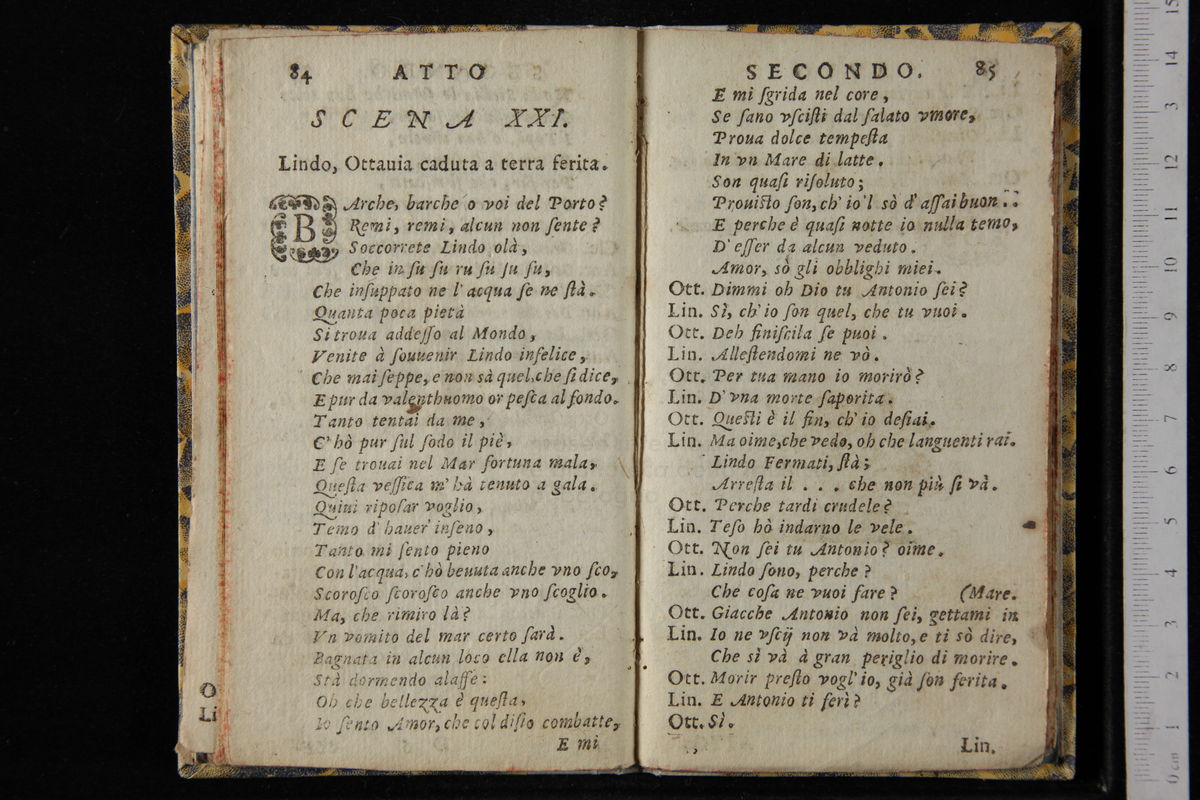 84 ATTO
SCENA XXI.
Lindo, Ottauia caduta a terra ferita.
BArche, barche o voi del Porto?
Remi, remi, alcun non ſente?
Soccorrete Lindo olà,
Che in ſu ſu ru ſu ſu ſu,
Che inſuppato ne l'acqua ſe ne ſtà.
Quanta poca pietà
Si troua addeſſo al Mondo,
Venite à ſouuenir Lindo infelice,
Che mai ſeppe, e non sà quel, che ſi dice,
E pur da valenthuomo or peſca al fondo.
Tanto tentai da me,
C'hò pur ſul ſodo il piè,
E ſe trouai nel Mar fortuna mala,
Queſta veſſica m'hà tenuto a gala.
Quiui ripoſar voglio,
Temo d'hauer' inſeno,
Tanto mi ſento pieno
Con l'acqua, c'hò beuuta anche vno ſco,
Scoroſco ſcoroſco anche vno ſcoglio.
Ma, che rimiro là?
Vn vomito del mar certo ſarà.
Bagnata in alcun loco ella non è,
Stà dormendo alaffe:
Oh che bellezza è queſta,
Io ſento Amor, che col diſio combatte,
E mi
O
Li
SECONDO. 85
E mi ſgrida nel core,
Se ſano vſciſti dal ſalato vmore,
Proua dolce tempeſta
In vn Mare di latte.
Son quaſi riſoluto;
Prouiſto ſon, ch'io'l sò d'aſſai buon . .
E perche è quaſi notte io nulla temo,
D'eſſer da alcun veduto.
Amor, sò gli obblighi miei.
Ott. Dimmi oh Dio tu Antonio ſei?
Lin. Sì, ch'io ſon quel, che tu vuoi.
Ott. Deh finiſcila ſe puoi.
Lin. Alleſtendomi ne vò.
Ott. Per tua mano io morirò?
Lin. D'vna morte ſaporita.
Ott. Queſti è il fin, ch'io deſiai.
Lin. Ma oime, che vedo, oh che languenti rai.
Lindo Fermati, ſtà;
Arreſta il . . . che non più ſi và.
Ott. Perche tardi crudele?
Lin. Teſo hò indarno le vele.
Ott. Non ſei tu Antonio? oime.
Lin. Lindo ſono, perche?
Che coſa ne vuoi fare? (Mare.
Ott. Giacche Antonio non ſei, gettami in
Lin. Io ne vſcij non và molto, e ti sò dire,
Che sì và à gran periglio di morire.
Ott. Morir preſto vogl'io, già ſon ferita.
Lin. E Antonio ti ferì?
Ott. Sì.
Lin.
15
14
13
12
11
10
9
8
7
6
5
4
3
2
1
0 cm